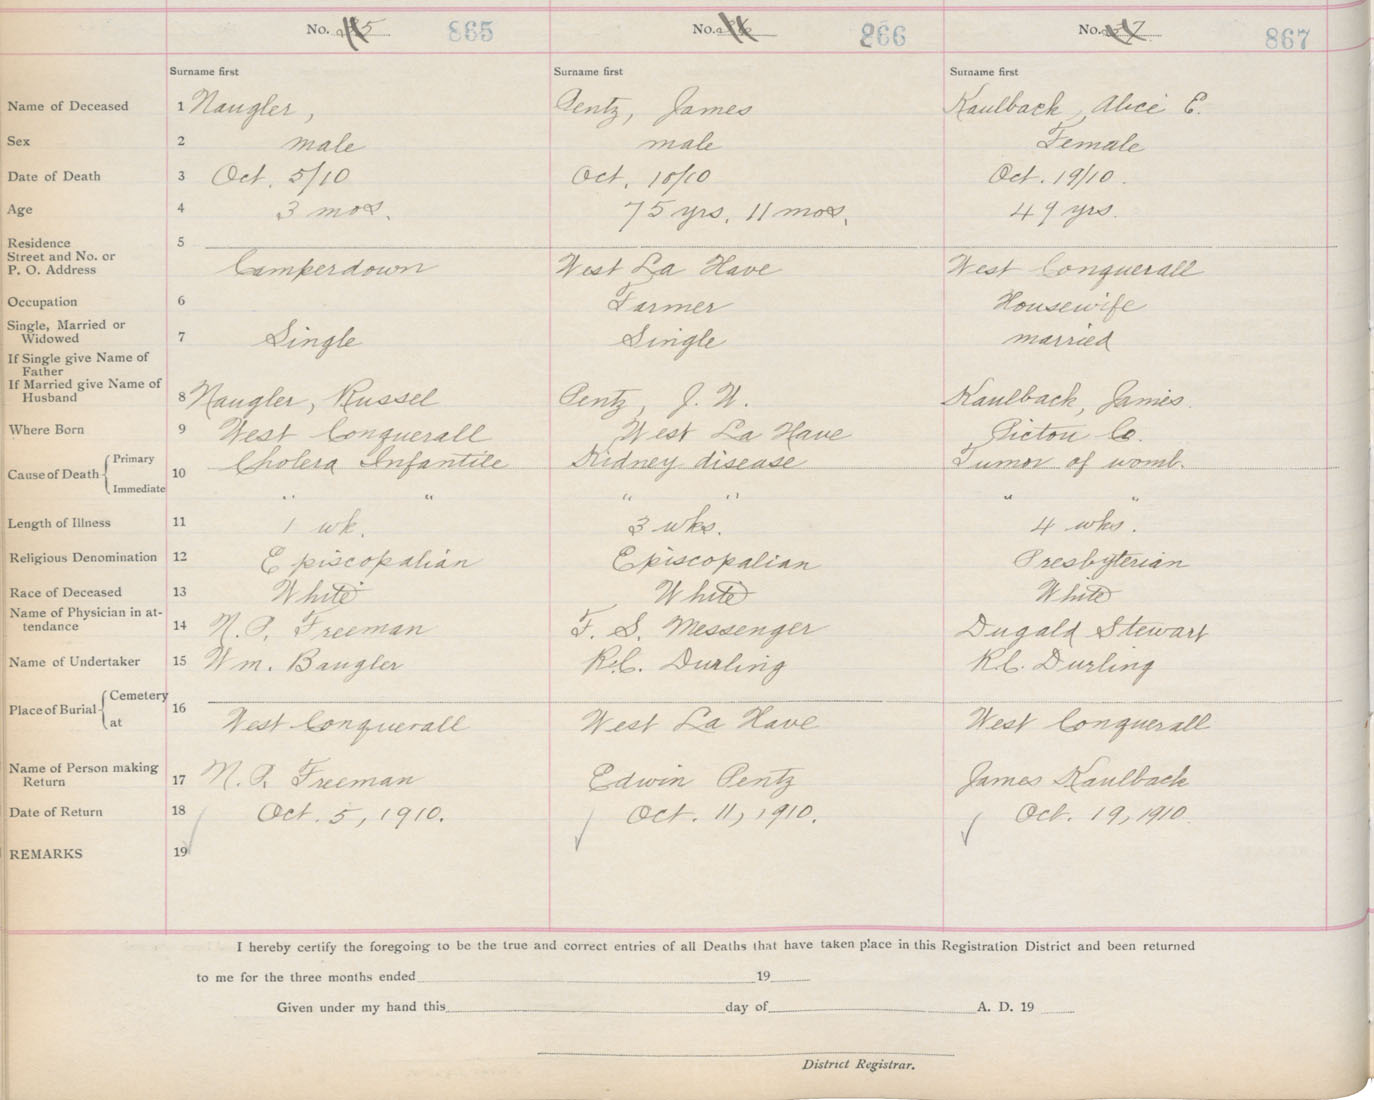 No. 865 No. 866 No. 37 867
Surname first Surname first Surname first
Name of Deceased 1 Naugler, Pentz, James Kaulback, Alice E.
Sex 2 male male Female
Date of Death 3 Oct. 5/10 Oct. 10/10 Oct. 19/10.
Age 4 3 mos. 75 yrs. 11 mos. 49 yrs.
Residence 5
Street and No. or
P. O. Address Camperdown West La Have West Conquerall
Occupation 6 Farmer Housewife
Single, Married or
Widowed 7 Single Single married
If Single give Name of
Father
If Married give Name of
Husband 8 Naugler, Russel Pentz, J. W. Kaulback, James
Where Born 9 West Conquerall West La Have Pictou Co.
Cause of Death Primary 10 Cholera Infantile Kidney disease Tumor of womb.
Immediate " " " " " "
Length of Illness 11 1 wk. 3 wks. 4 wks.
Religious Denomination 12 Episcopalian Episcopalian Presbyterian
Race of Deceased 13 White White White
Name of Physician in at-
tendance 14 N. P. Freeman F. S. Messenger Dugald Stewart
Name of Undertaker 15 Wm. Baugler R.C. Durling R.C. Durling
Place of Burial Cemetery 16
at West Conquerall West La Have West Conquerall
Name of Person making
Return 17 N. P. Freeman Edwin Pentz James Kaulback
Date of Return 18 Oct. 5, 1910. Oct. 11, 1910. Oct. 19, 1910.
REMARKS 19
I hereby certify the foregoing to be the true and correct entries of all Deaths that have taken place in this Registration District and been returned
to me for the three months ended 19
Given under my hand this day of A. D. 19
District Registrar.